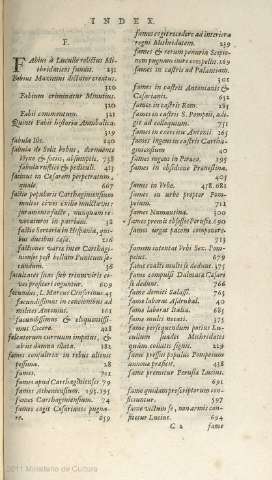 INDEX
F.
FAbius à Lucullo relictus Mi-
thridatem fundit. 231
Fabius Maximus dictator creatur.
320
Fabium criminatur Minutius.
320
Fabii commentum. 321
Quinte Fabii historia Annibalica.
319
fabula Ibi. 240
fabula de Sole bobus, dormienti-
738
fabula rustici & pediculi. 421
facinus in Casarem perpetratum,
quale. 667
factio popularis Carthaginensium
multos cives exilio mulctavit:
juramento facto, nunquam re-
vocaturos in patriam.
factio Servaria in Hispania, qui-
bus ducibus capta. 216
factiones quatuor inter Carthagi-
nenses post bellum Punicum se-
cundum. 38
facultates suas sub triumviris ci-
ves proferre coguntur. 609
fœcundus, L. Martius Censorinus. 45
facundissimus in concionibus ad
milites Antonius. 161
facundissimus & eloquentissi-
mus Cicero. 428
falcatorum curruum impetus, &
182
fames consultrix in rebus alienis
pessima. 28
fames. 701
fames apud Carthaginenses 79
fames Atheniensium. 195.195
fames Carthaginensium. 74
fames cogit Cæsarianos pugna-
re. 259
fames cogit recedere ad interiora
regni Mithridatem. 239
fames & rerum penuria Scipio-
nem pugnam inire compellit. 289
fames in castris ad Palantiam.
302
fames in castris Antonianis &
Cæsarianis. 541
fames in castris Rom. 285
fames in castris S. Pompeii, adi-
git ad colloquium.
fames in exercitu Antonii. 165
fames ingens in castris Cartha-
ginensium 40
fames ingens in Piraeo. 195
fames in obsidione Praenestina.
405
fames in Urbe. 418, 684
fames in urbe propter Pom-
peium. 712
fames Numantina. 300
fames premit obsessos Perusiæ. 690
fames urget pacem componere.
713
famem intentat Urbi Sex. Pom-
peius. 679
fame exacti multi se dedunt. 175
fame compulsi Dalmatæ Cæsari
se dedunt. 766
fame domiti Salassi. 765
fame laborat Asdrubal. 40
fame laborat Italia. 685
fame multi necati. 375
fame persequendum potius Lu-
cullum suadet Mithridates
quàm collatis signis. 229
fame pressis populis Pompeium
annona præfecit. 438
fame premitur Perusia Lucius.
691
fame quidam proscriptorum con-
ficiuntur. 597
fame victum se, non armis con-
fitetur Lucius. 694
C 2 fame
2011 Ministerio de Cultura